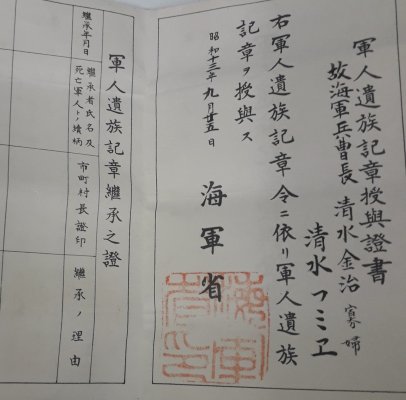 軍人遺族記章授與證書
故海軍兵曹長 清水金治 寡婦
清水フミヱ
右軍人遺族記章令ニ依リ軍人遺族
記章ヲ授與ス
昭和十三年九月廿五日
海軍省
海軍省印
軍人遺族記章継承之證
継承年月日
継承者氏名及
死亡軍人トノ續柄
市町村長證印
継承ノ理由